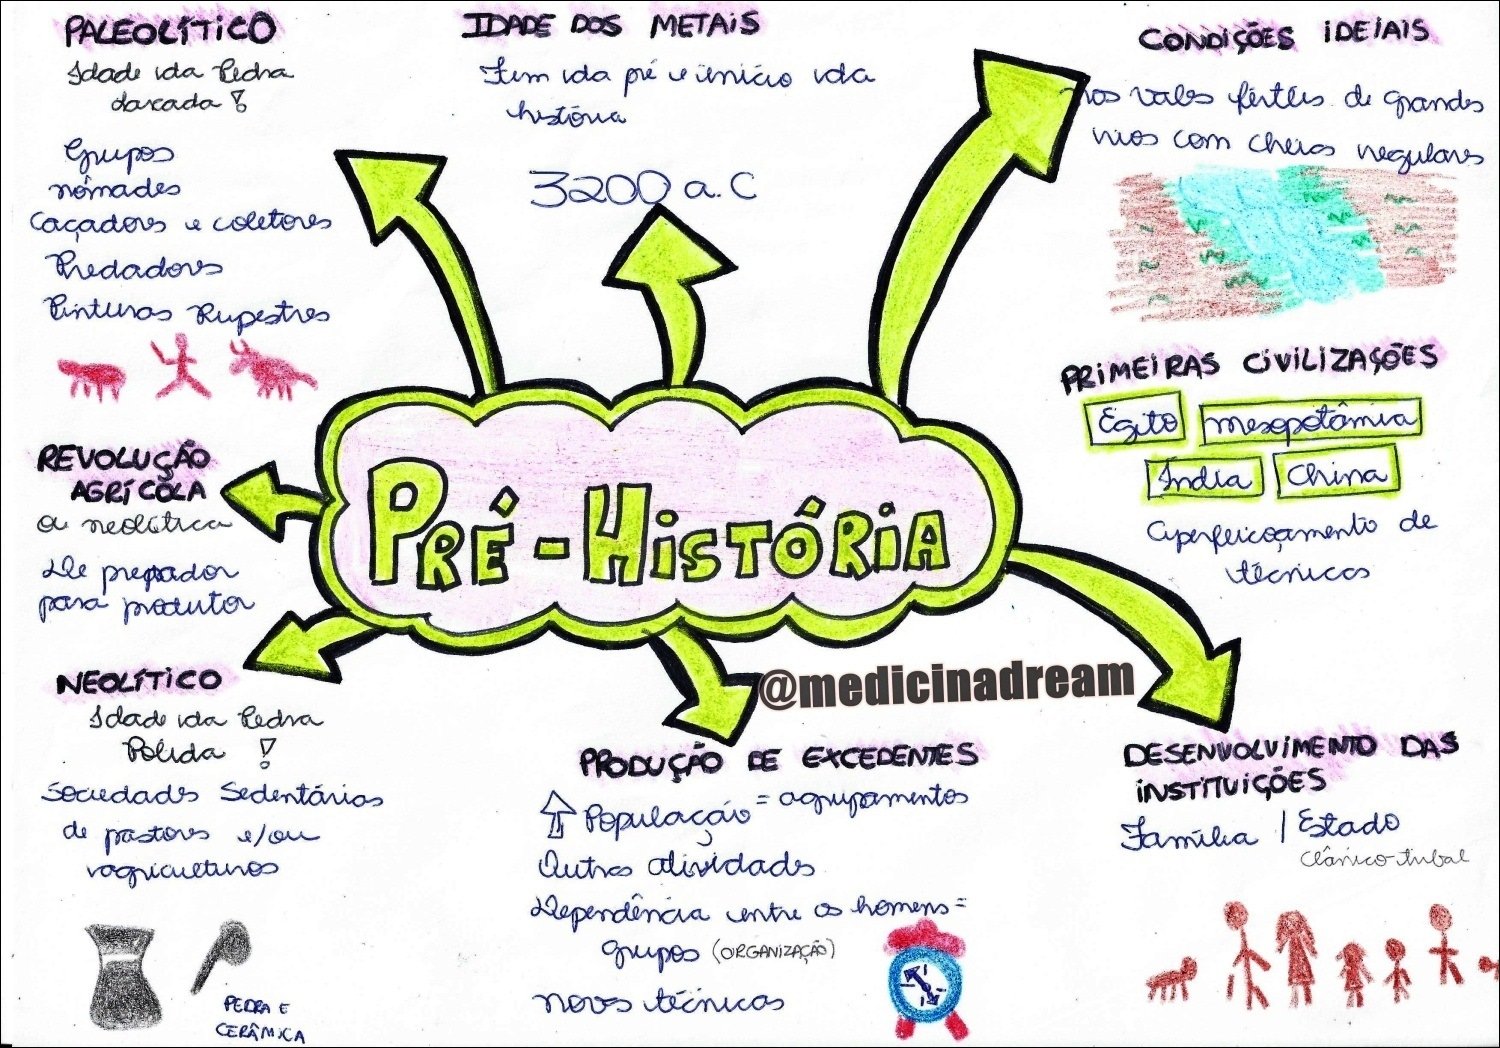 PALEOLÍTICO
Idade da Pedra
Lascada!
Grupos
nômades
Caçadores e coletores
Predadores
Pinturas Rupestres
IDADE DOS METAIS
Fim da pré e início da
história
3200 a.C
CONDIÇÕES IDEIAIS
nos vales férteis de grandes
rios com cheias regulares
PRIMEIRAS CIVILIZAÇÕES
Egito
mesopotâmia
Índia
China
aperfeiçoamento de
técnicas
REVOLUÇÃO
AGRÍCOLA
ou neolítica
De
para produtor
PRÉ-HISTÓRIA
@medicinadream
NEOLÍTICO
Idade da Pedra
Polida!
Sociedades Sedentárias
de pastores e/ou
agricultores
PEDRA E
CERÂMICA
PRODUÇÃO DE EXCEDENTES
População = agrupamentos
Outras atividades
Dependência entre os homens =
grupos (ORGANIZAÇÃO)
novas técnicas
DESENVOLVIMENTO DAS
INSTITUIÇÕES
Família / Estado